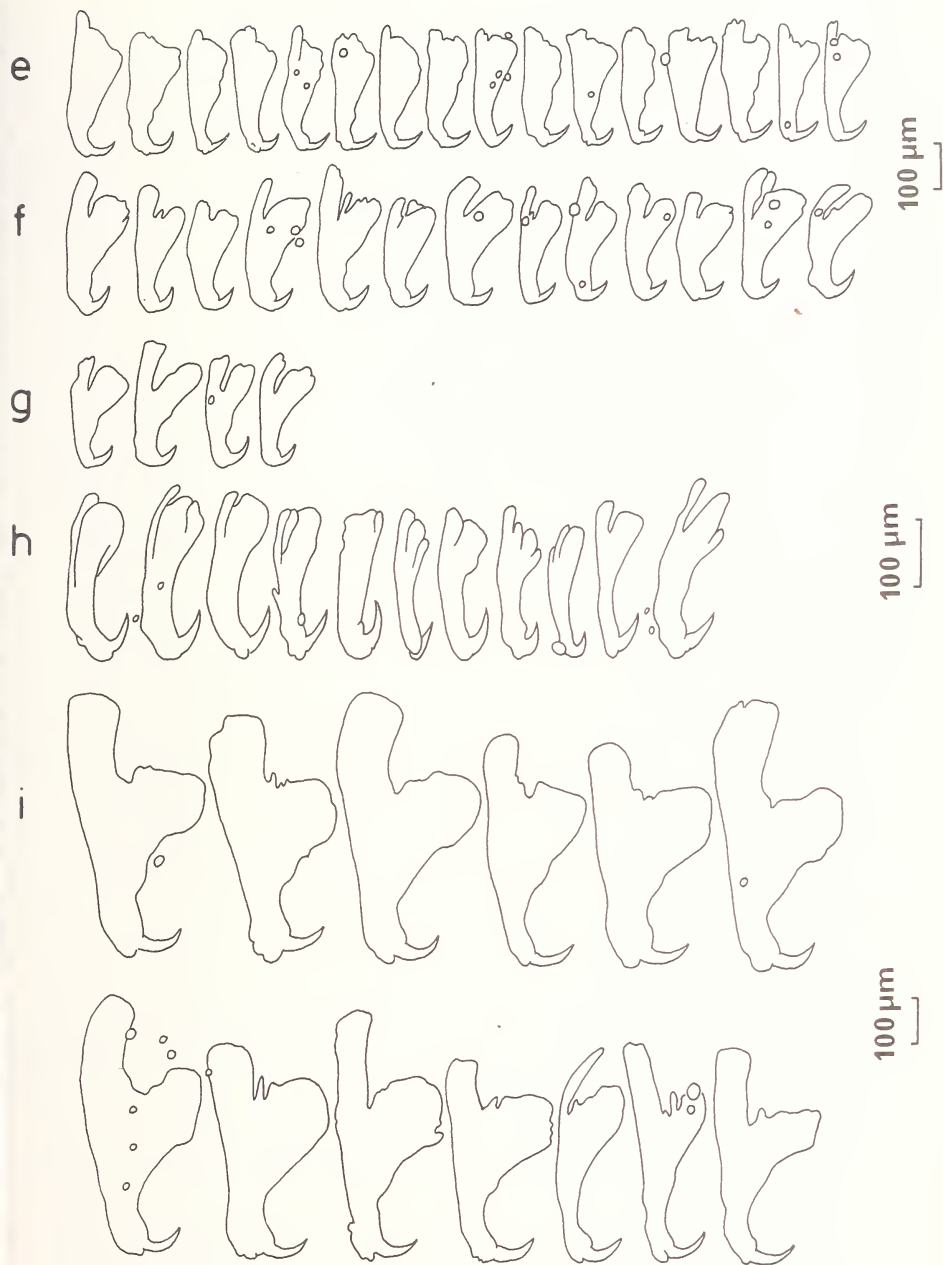 e
100 µm
f
g
h
100 µm
i
100 µm